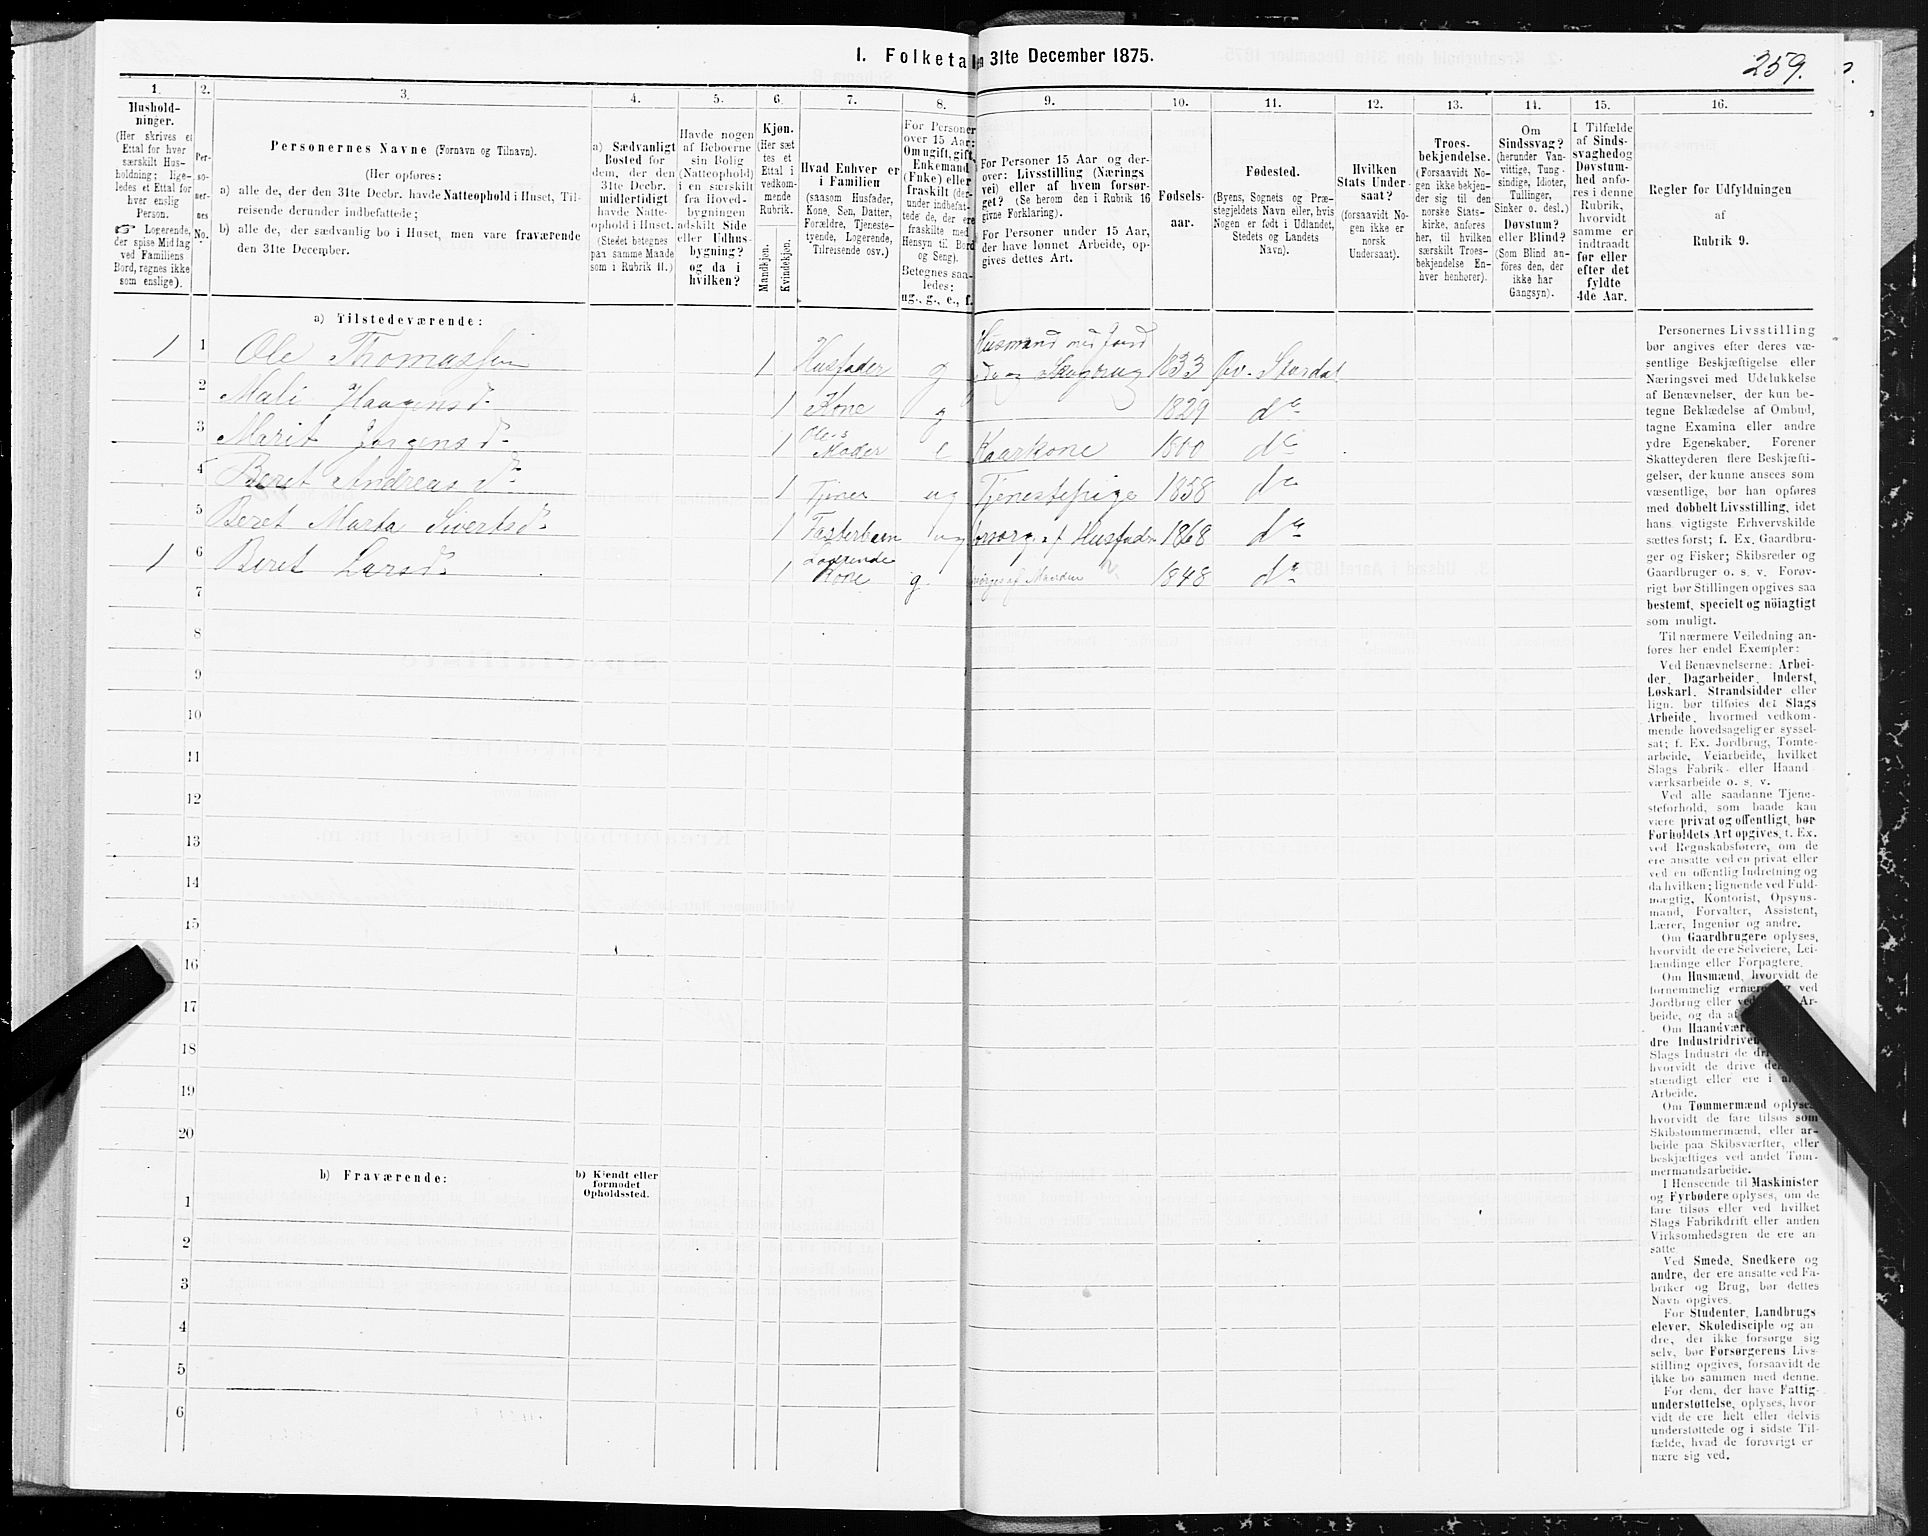 I. Folketal den 31te December 1875.
259.
1. 2. 3. 4. 5. 6. 7. 8. 9. 10. 11. 12. 13. 14. 15. 16.
Hushold-
ninger.
(Her skrives et
Ettal for hver
særskilt Hus-
holdning; lige-
ledes et Ettal for
hver enslig
Person.
☞ Logerende,
der spise Middag
ved Familiens
Bord, regnes ikke
som enslige).
Per-
so-
ner-
nes
No.
Personernes Navne (Fornavn og Tilnavn).
(Her opføres:
a) alle de, der den 31te Decbr. havde Natteophold i Huset, Til-
reisende derunder indbefattede;
b) alle de, der sædvanlig bo i Huset, men vare fraværende
den 31te December.
a) Sædvanligt
Bosted for
dem, der den
31te Decbr.
midlertidigt
havde Natte-
ophold i Huset.
(Stedet betegnes
paa samme Maade
som i Rubrik 11.)
Havde nogen
af Beboerne
sin Bolig
(Natteophold)
i en særskilt
fra Hoved-
bygningen
adskilt Side
eller Udhus-
bygning?
og da i
hvilken?
Kjøn.
(Her sæt
tes et
Ettal i
vedkom-
mende
Rubrik.
Mandkjøn.
Kvindekjøn.
Hvad Enhver er
i Familien
(saasom Husfader,
Kone, Søn, Datter,
Forældre, Tjeneste-
tyende, Logerende,
Tilreisende osv.)
For Personer
over 15 Aar:
Om ugift, gift,
Enkemand
(Enke) eller
fraskilt (der-
under indbefat-
tede de, der ere
fraskilte med
Hensyn til Bord
og Seng).
Betegnes saa-
ledes:
ug., g., e., f.
For Personer 15 Aar og der-
over: Livsstilling (Nærings
vei) eller af hvem forsør-
get? (Se herom den i Rubrik 16
givne Forklaring).
For Personer under 15 Aar,
der have lønnet Arbeide, op-
gives dettes Art.
Fødsels-
aar.
Fødested.
(Byens, Sognets og Præ-
stegjeldets Navn eller, hvis
Nogen er født i Udlandet,
Stedets og Landets
Navn).
Hvilken
Stats Under-
saat?
(forsaavidt No-
gen ikke er
norsk
Undersaat).
Troes-
bekjendelse.
(Forsaavidt No-
gen ikke bekjen-
der sig til den
norske Stats-
kirke, anføres
her, til hvilken
særskilt Troes-
bekjendelse En-
hver henhører).
Om
Sindssvag?
(herunder Van-
vittige, Tung-
sindige, Idioter,
Tullinger,
Sinker o. desl.)
Døvstum?
eller Blind?
(Som Blind an-
føres den, der
ikke har
Gangsyn).
I Tilfælde
af Sinds-
svaghed og
Døvstum-
hed anfø-
res i denne
Rubrik,
hvorvidt
samme er
indtraadt
før eller
efter det
fyldte
4de Aar.
Regler for Udfyldningen
af
Rubrik 9.
a) Tilstedeværende:
Husmand med Jord
1 1 Ole Thomassen 1 Husfader g Skogbrug 1833 Øv. Stordal
2 Mali Haagensd. 1 Kone g 1829 do
3 Marit Jørgensd. 1 Ole's Moder e Kaarkone 1800 do
4 Beret Andreasd. 1 Tjener ug Tjenestepige 1858 do
5 Beret Marta Sivertsd. 1 Fosterbarn ug forsørg. af Husfader 1868 do
1 6 Beret Larsd. 1 Logerende Kone g. forsørges af Manden 1848 do
7
8
9
10
11
12
13
14
15
16
17
18
19
20
b) Fraværende:
b) Kjendt eller
formodet
Opholdssted.
1
2
3
4
5
6
Personernes Livsstilling
bør angives efter deres væ-
sentlige Beskjæftigelse eller
Næringsvei med Udelukkelse
af Benævnelser, der kun be-
tegne Beklædelse af Ombud,
tagne Examina eller andre
ydre Egenskaber. Forener
Skatteyderen flere Beskjæfti-
gelser, der kunne ansees som
væsentlige, bør han opføres
med dobbelt Livsstilling, idet
hans vigtigste Erhvervskilde
sættes først; f. Ex. Gaardbru-
ger og Fisker; Skibsreder og
Gaardbruger o. s. v. Forøv-
rigt bør Stillingen opgives saa
bestemt, specielt og nöiagtigt
som muligt.
Til nærmere Veiledning an-
føres her endel Exempler:
Ved Benævnelserne: Arbei-
der, Dagarbeider, Inderst,
Løskarl, Strandsidder eller
lign. bør tilføies det Slags
Arbeide, hvormed vedkom-
mende hovedsageliger syssel-
sat; f. Ex. Jordbrug, Tomte-
arbeide, Veiarbeide, hvilket
Slags Fabrik- eller Haand-
værksarbeide o. s. v.
Ved alle saadanne Tjene-
steforhold, som baade kan
være privat og offentligt, bør
Forholdets Art opgives, t. Ex.
ved Regnskabsførere, om de
ere ansatte ved en privat eller
ved en offentlig Indretning og
da hvilken; lignende ved Fuld-
mægtig, Kontorist, Opsyns-
mand, Forvalter, Assistent,
Lærer, Ingeniør og andre.
Om Gaardbrugere oplyses,
hvorvidt de ere Selveiere, Lei-
lændinge eller Forpagtere.
Om Husmænd, hvorvidt de
fornemmelig ernære sig ved
Jordbrug eller ved Ar-
beide, og da af
Om Haandvær
dre Industridriven
Slags Industri de dri
hvorvidt de drive de
stændigt eller ere i
Arbeide.
Om Tømmermænd oplyses,
hvorvidt de fare tilsøs som
Skibstømmermænd, eller ar-
beide paa Skibsværfter, eller
beskjæftiges ved andet Tøm-
mermandsarbeide.
I Henseende til Maskinister
og Fyrbødere oplyses, om de
fare tilsøs eller ved hvilket
Slags Fabrikdrift eller anden
Virksomhedsgren de ere an-
satte.
Ved Smede, Snedkere og
andre, der ere ansatte ved Fa-
briker og Brug, bør dettes
Navn opgives.
For Studenter, Landbrugs
elever, Skoledisciple og an-
dre, der ikke forsørge sig
selv, bør Forsørgerens Livs-
stilling opgives, forsaavidt de
ikke bo sammen med denne.
For dem, der have Fattig-
understøttelse, oplyses, hvor-
vidt de ere helt eller delvis
understøttede og i sidste Til-
fælde, hvad de forøvrigt er-
nære sig ved.